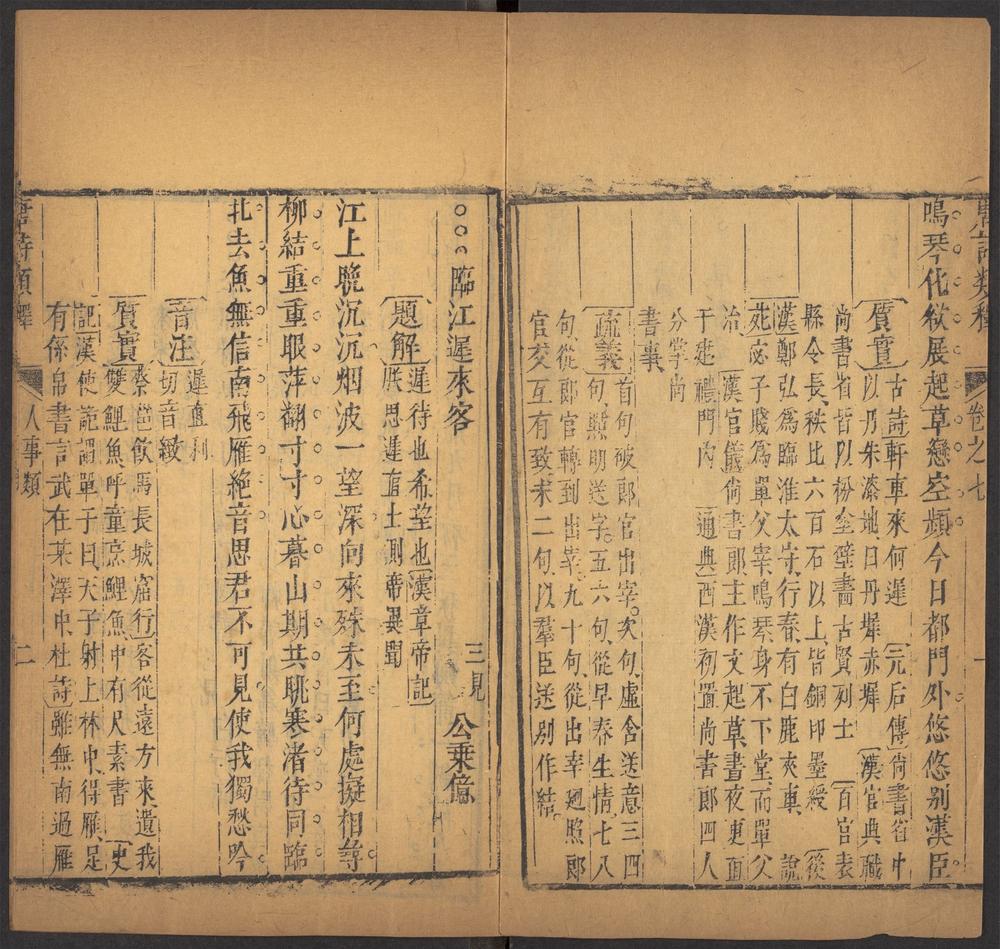 唐詩類釋 卷之七 一
鳴琴化欲展起草戀空頻今日都門外悠悠别漢臣
質實 古詩軒車來何遲 元后傳尚書省中
以丹朱漆地曰丹墀赤墀 漢官典職
尚書省皆以粉塗壁畫古賢列士 百官表
縣令長秩比六百石以上皆銅印墨綬 後
漢鄭弘爲臨淮太守行春有白鹿夾車 說
苑宓子賤爲單父宰鳴琴身不下堂而單父
冶 漢官儀尚書郎主作文起草晝夜更直
于建禮門内 通典西漢初置尚書郎四人
分掌尚
書事
疏義 首句破郎官出宰次句虛含送意三四
句照明送字五六句從早春生情七八
句從郎官轉到出宰九十句從出宰廻照郎
官交互有致末二句以羣臣送别作結
臨江遲來客 三見 公乗億
題解 遲待也希望也漢章帝記
朕思遲直士側帝異聞
江上晩沉沉烟波一望深向來殊未至何處擬相尋
柳結重重眼萍翻寸寸心暮山期共眺寒渚待同臨
北去魚無信南飛雁絶音思君不可見使我獨愁吟
音注 遲直利
切音緻
質實 蔡邕飲馬長城窟行客從遠方來遺我
雙鯉魚呼童烹鯉魚中有尺素書 史
記漢使詭謂單于曰天子射上林中得雁足
有係帛書言武在某澤中杜詩雖無南過雁
唐詩類釋 人事類 二